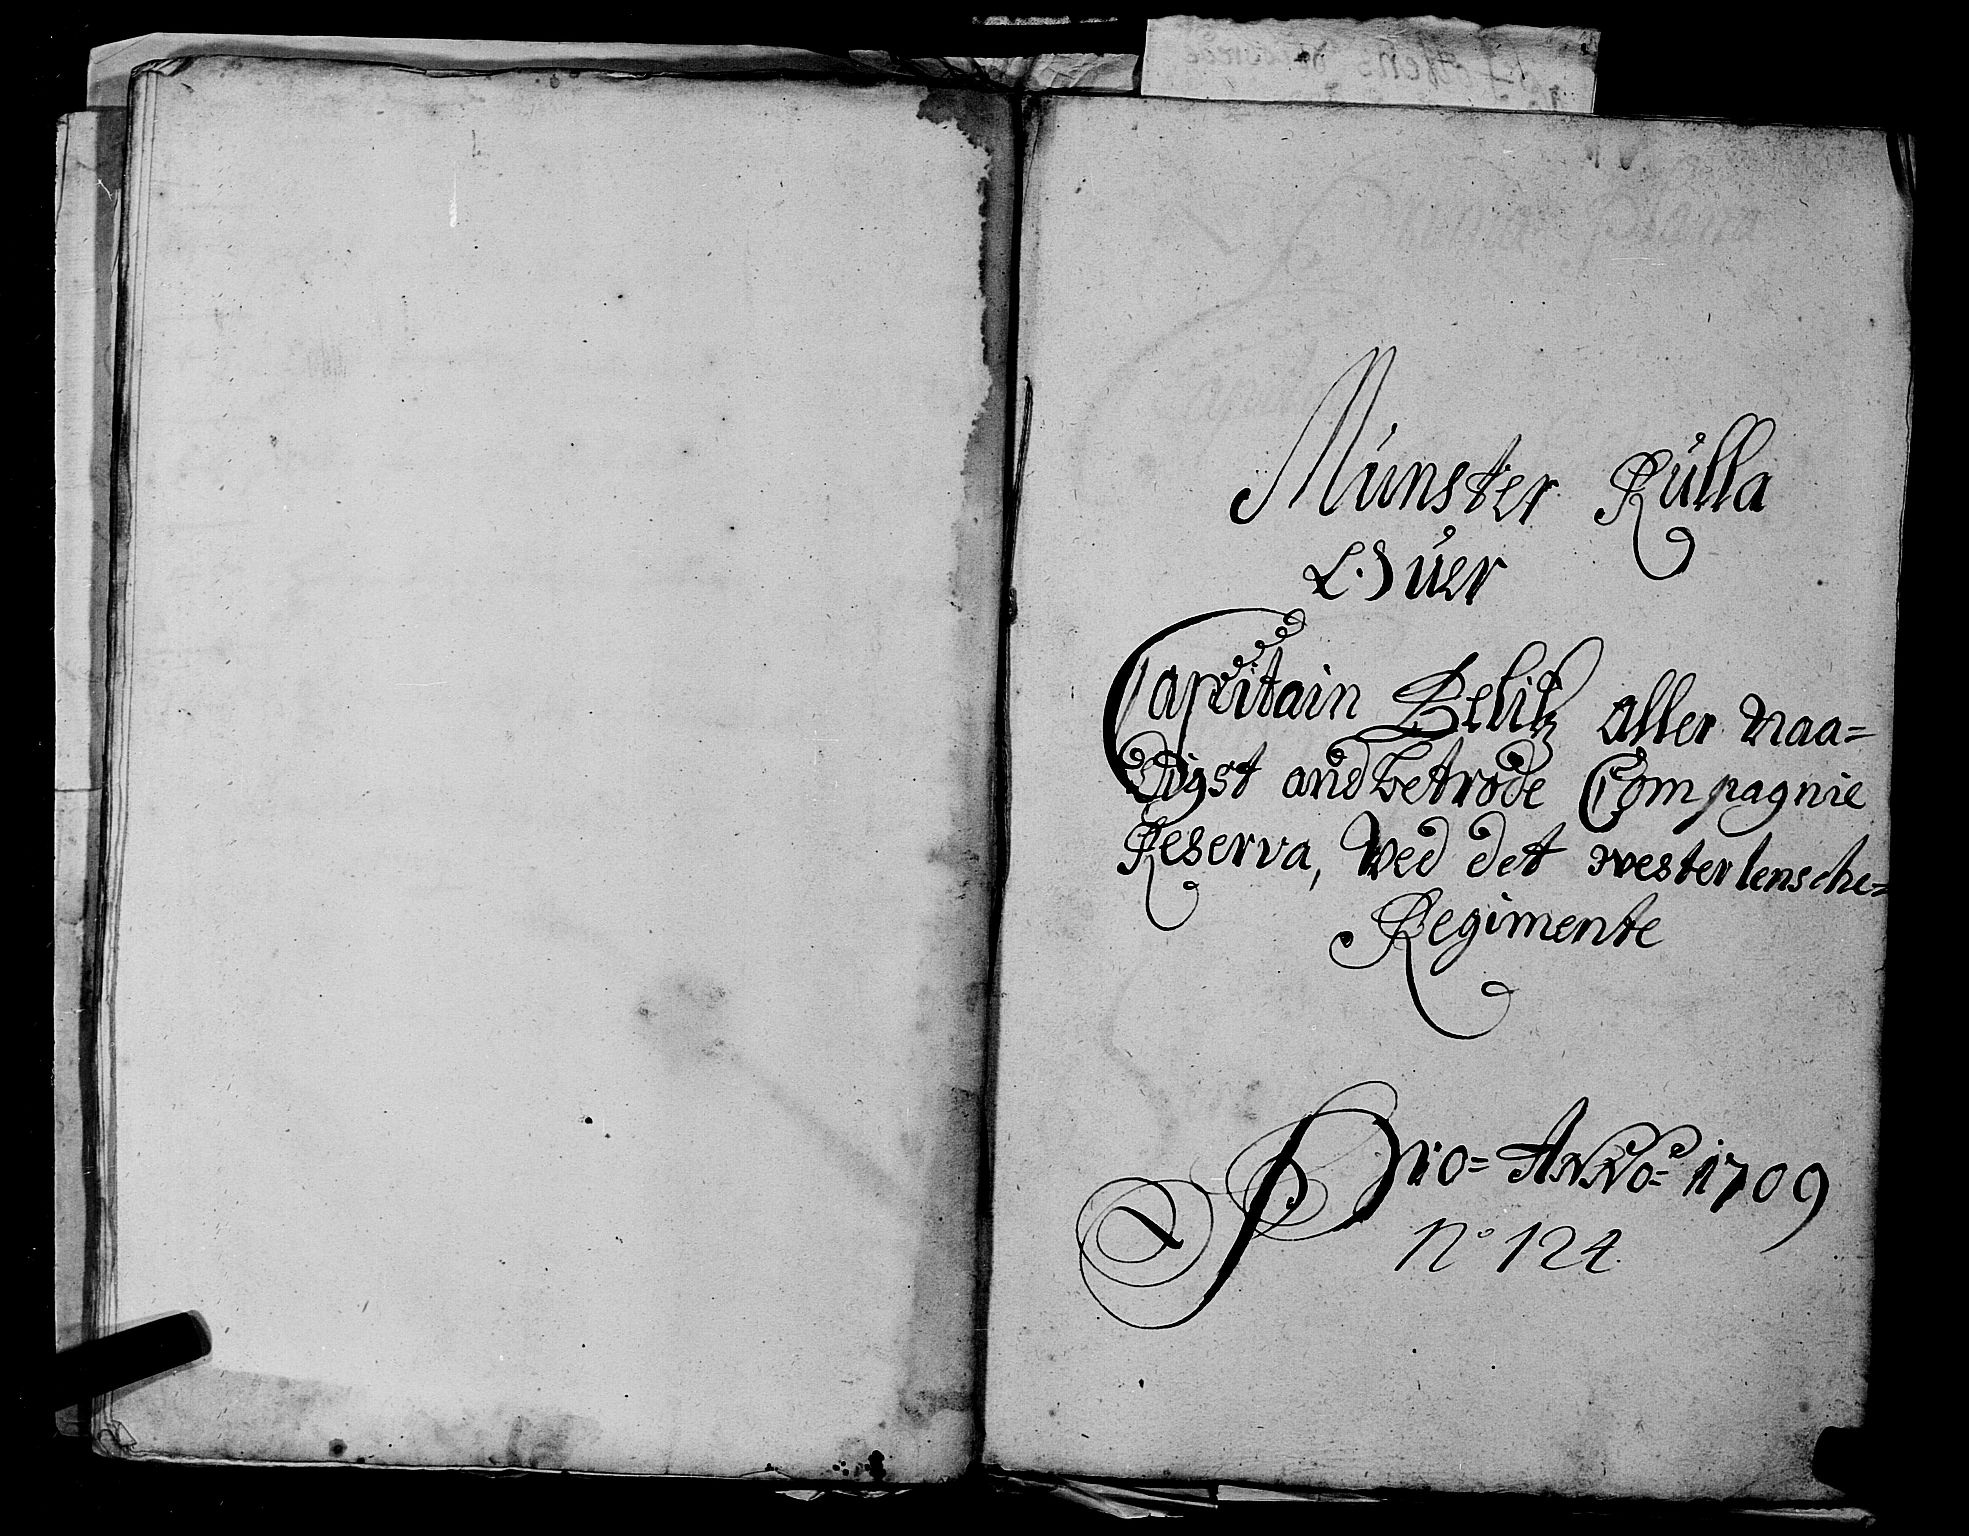 Múnster Rúlla
Ofúer
Capitain Belitz aller naa=
digst andbetrode Compagnie
Reserva, Wed det westerlensche=
Regimente
Pro= Anno= 1709
No 124